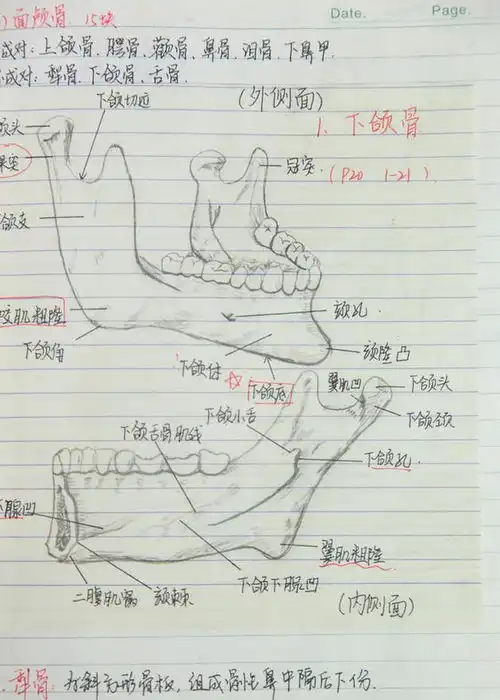 Date. Page.
)面颅骨 15块
成对：上颌骨、腭骨、颧骨、鼻骨、泪骨、下鼻甲.
成对：犁骨、下颌骨、舌骨.
下颌切迹
(外侧面)
颌头
1、下颌骨
突
冠突.
(P20 1-21)
颌支
咬肌粗隆
颏孔
下颌角
颏隆凸
下颌体
下颌底
翼肌凹
下颌头
下颌小舌
下颌颈
下颌舌骨肌线
下颌孔.
腺凹
翼肌粗隆
二腹肌窝
颏棘
下颌下腺凹
(内侧面)
犁骨：为斜方形骨板，组成骨性鼻中隔后下份.